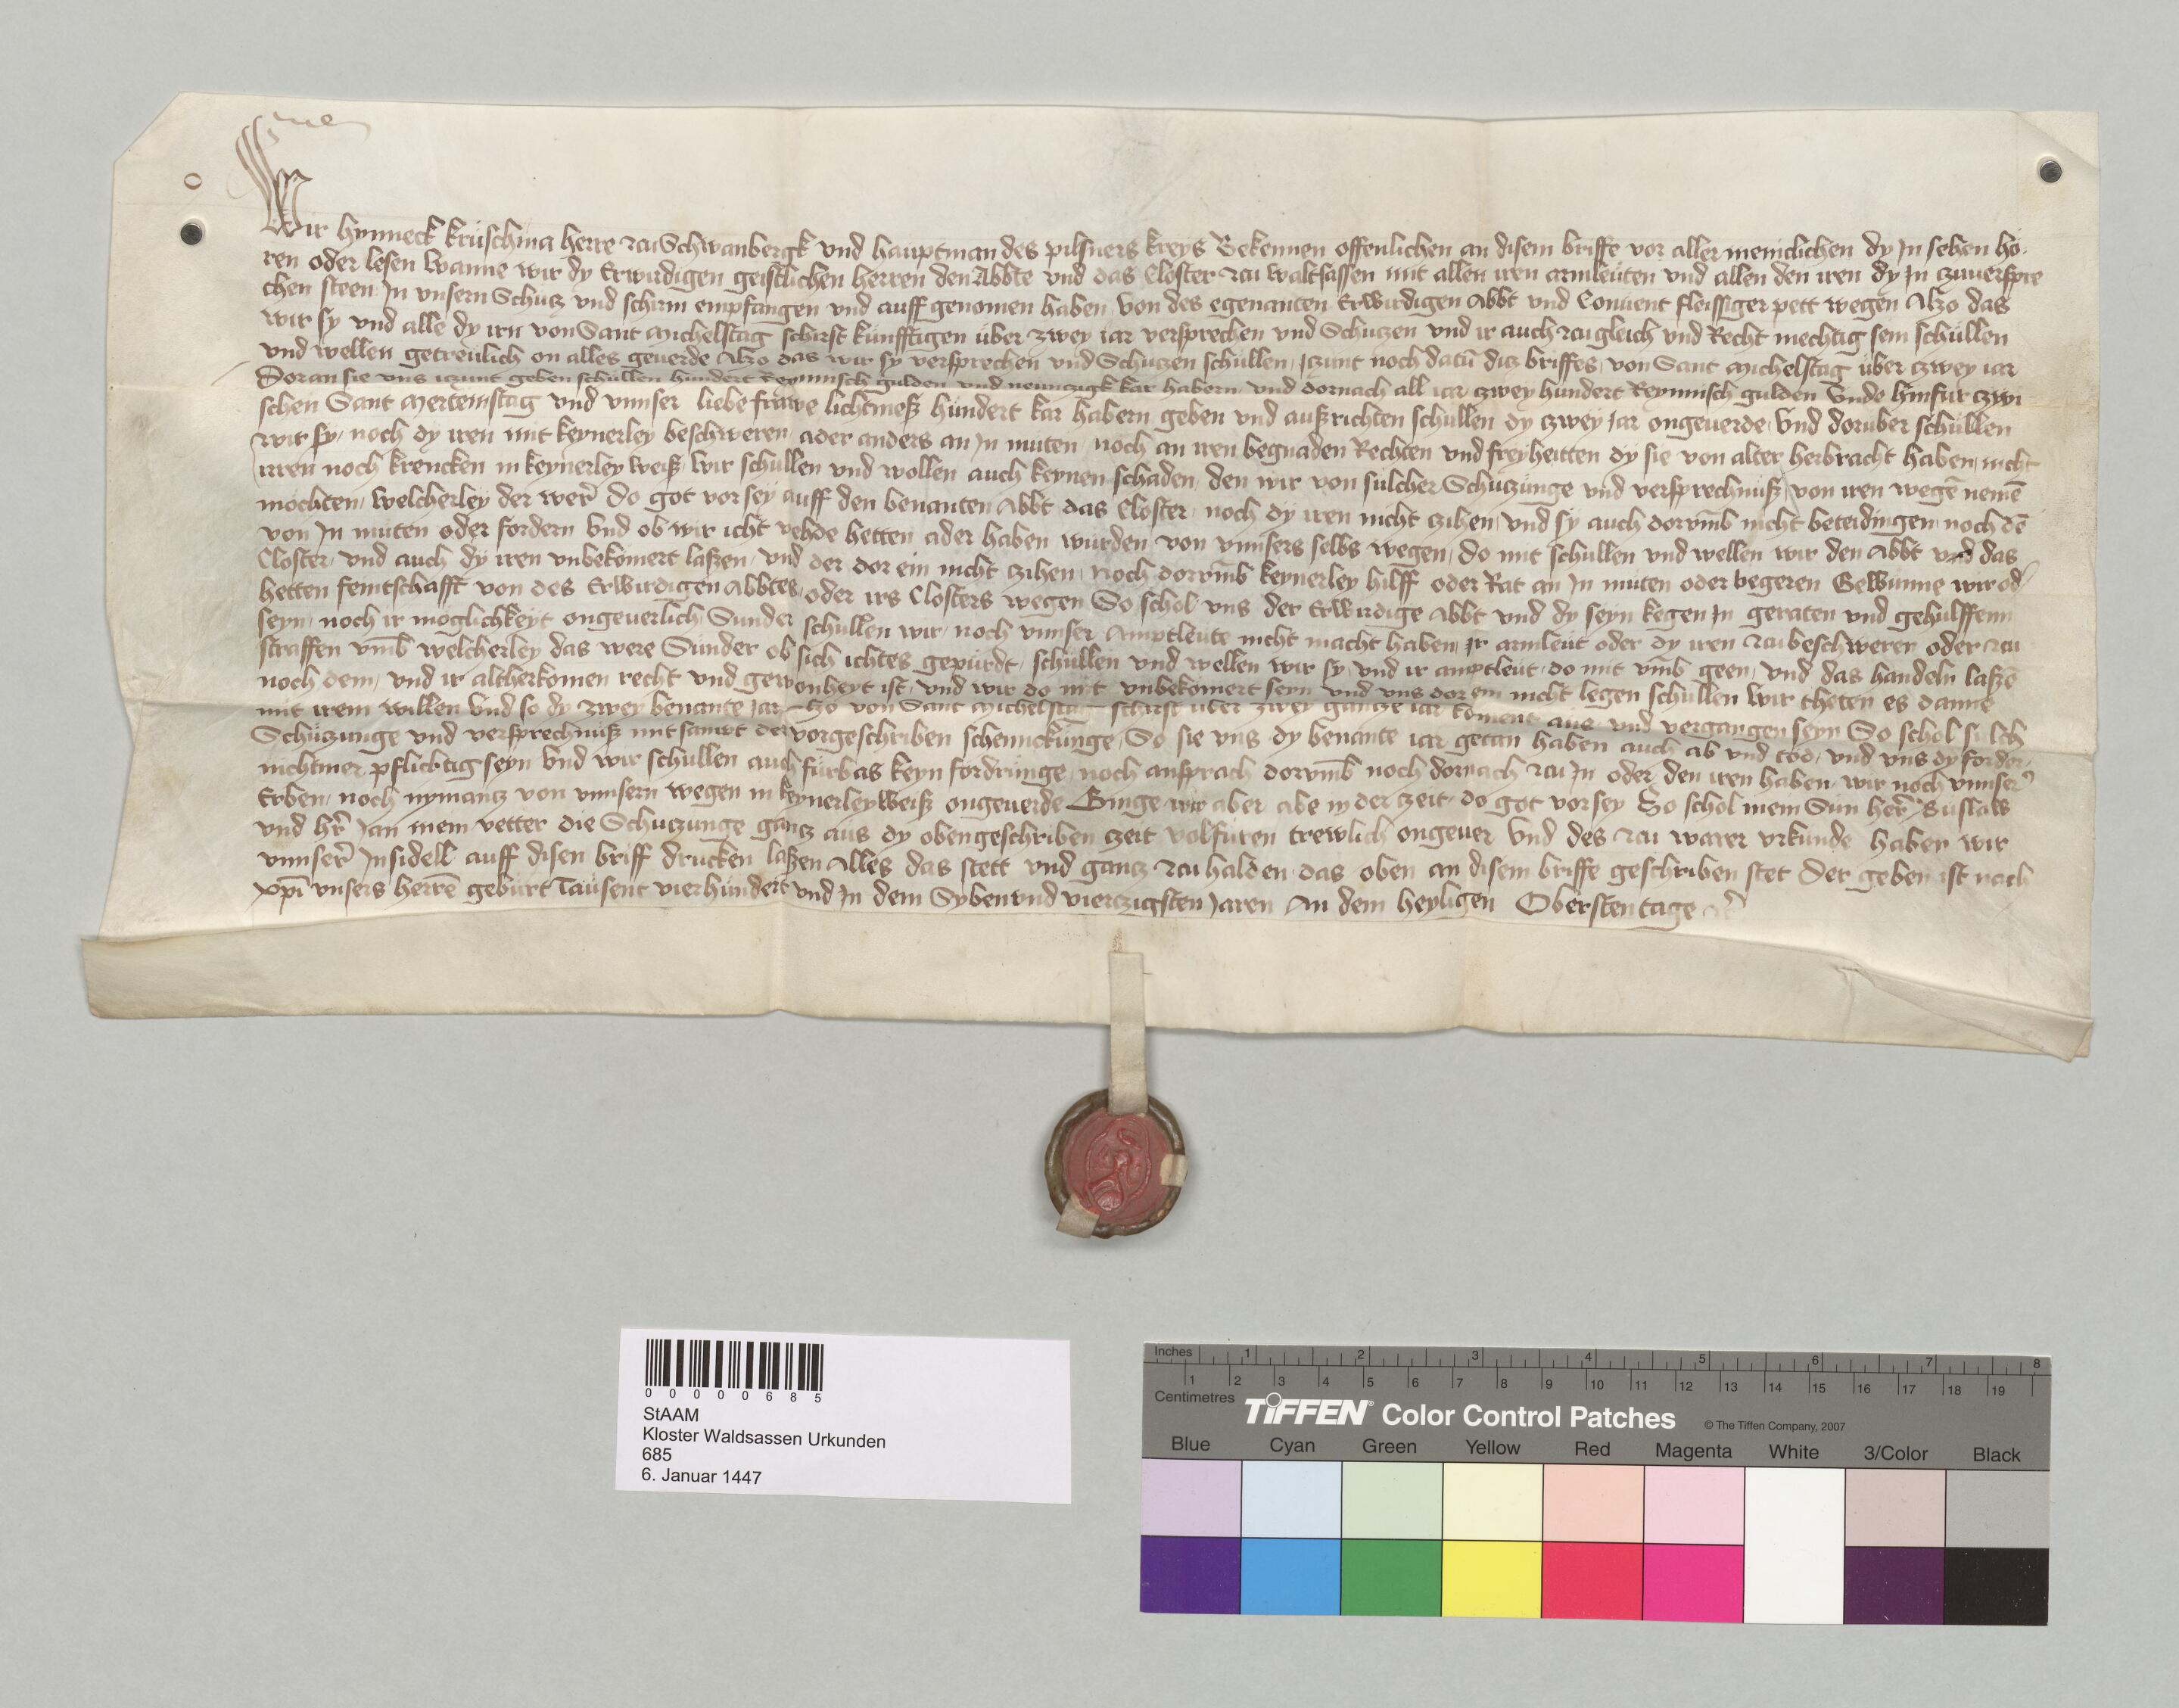 Wir hynneck kruschina herre zcu Schwanbergk vnd hauptman des pilsners kreys Bekennen offenlichen an disem briffe vor aller meniclichen dy Jn sehen ho
ren oder lesen Wanne wir dy Erwirdigen geistlichen herren den Abbte vnd das Closter zcu waltsassen mit allen iren armleuten vnd allen den iren dy Jn zcuuerspre
chen steen Jn vnsern Schutz vnd schirm empfangen vnd auff genomen haben von des egenanten Erwirdigen Abbt vnd Conuent fleissiger pett wegen Alzo das
wir sy vnd alle dy irn von Sant Michelstag schirst kunfftigen über zwey iar versprechen vnd Schutzen vnd ir auch zcu gleich vnd Recht mechtig sein schullen
vnd wellen getreulich on alles geuerde Alzo das wir sy versprechen vnd Schutzen schullen Jczunt noch datū ditz briffes von Sant Michelstag über zwey iar
Doran sie vns iczunt geben schullen hundert Reynnisch gulden vnd newnczigk kar habern vnd dornach all iar zwey hundert Reynnisch gulden Vnde hinfur zwi
schen Sant Merteinstag vnd vnnser liebe frawe lichtmeß hundert kar habern geben vnd außrichten schullen dy zwey Jar ongeuerde Vnd doruber schullen
wir sy noch dy iren mit keynerley beschweren ader anders an Jn muten noch an iren begnaden Rechten vnd freyheitten dy sie von alter herbracht haben nicht
irren noch krencken in keynerley weiß Wir schullen vnd wollen auch keynen schaden den wir von sulcher Schutzunge vnd versprechnuß von iren wegē nemē
mochten welcherley der wer do got vor sey auff den benanten Abbt das Closter noch dy iren nicht zihen vnd sy auch dorvmb nicht beteidingen noch dē
von Jn muten oder fordern Vnd ob wir icht vehde hetten ader haben wurden von vnnsers selbs wegen do mit schullen vnd wellen wir den Abbt vnd das
Closter vnd auch dy iren vnbekomert laßen vnd der dor ein nicht zihen noch dorvmb keynerley hilff oder Rat an Jn muten oder begeren Gewunne wir od
hetten feintschafft von des Erwirdigen Abbtes oder irs Closters wegen So schol vns der Erwirdige Abbt vnd dy seyn kegen Jn geraten vnd gehulffenn
seyn noch ir möglichkeyt ongeuerlich Sunder schullen wir noch vnnser Amptleute nicht macht haben Jr armleut oder dy iren zcu beschweren oder zcu
straffen vmb welcherley das were Sunder ob sich ichtes gepurdt schullen vnd wellen wir sy vnd ir amptleut do mit vmb geen vnd das handeln laßē
noch dem vnd ir altherkomen recht vnd gewonheyt ist vnd wir do mit vnbekomert seyn vnd vns dor ein nicht legen schullen wir theten es danne
mit irem willen Vnd so dy zwey benante Jar Alzo von Sant Michelstag schirst uber zwey gantze iar koment aus vnd vergangen seyn So schol sulch
Schutzunge vnd versprechnuß mit sampt der vorgeschriben schennckunge So sie vns dy benante iar getan haben auch ab vnd tod vnd vns dy forder
nichtmer pflichtig seyn Vnd wir schullen auch furbas keyn fordrunge noch ansprach dorvmb noch dornach zcu Jn oder den iren haben wir noch vnnser
Erben noch nymantz von vnnsern wegen in keynerley weiß ongeuerde Ginge wir aber abe in der zeit do got vor sey So schol mein Sun her Bußlaw
vnd hr Jan mein vetter die Schutzunge gantz aus dy obengeschriben zeit volfuren trewlich ongeuer Vnd des zcu warer vrkunde haben wir
vnnser Jnsidell auff disen briff drucken laßen Alles das stett vnd gantz zcu halden das oben an disem briffe geschriben stet Der geben ist nach
xpi vnsers herrē geburt Tausent vierhundert vnd Jn dem Sybenvnd vierczigsten Jaren An dem heyligen Oberstentage
0 0 0 0 0 6 8 5
StAAM
Kloster Waldsassen Urkunden
685
6. Januar 1447
Inches 1 2 3 4 5 6 7 8
1 2 3 4 5 6 7 8 9 10 11 12 13 14 15 16 17 18 19
Centimetres
TIFFEN® Color Control Patches © The Tiffen Company, 2007
Blue Cyan Green Yellow Red Magenta White 3/Color Black